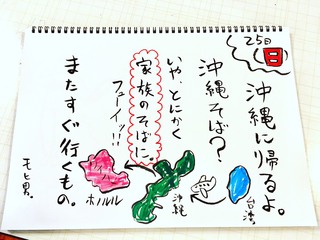 25日
(日)
沖縄に帰るよ。
沖縄そば?
いや、とにかく
家族のそばに。
フューイッ!!!
またすぐ行くもの。
台湾
沖縄
ホノルル